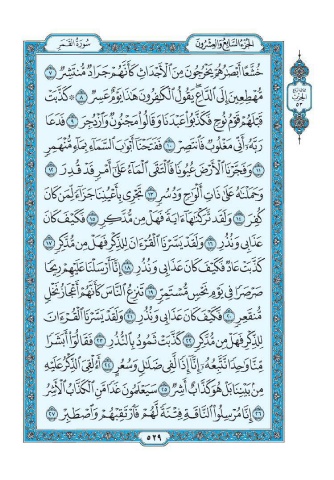 سُورَةُ القَمَر
الجُزْءُ السَّابِعُ وَالعِشْرُونَ
خُشَّعًا أَبْصَٰرُهُمْ يَخْرُجُونَ مِنَ ٱلْأَجْدَاثِ كَأَنَّهُمْ جَرَادٌ مُّنتَشِرٌ ٧
مُّهْطِعِينَ إِلَى ٱلدَّاعِ يَقُولُ ٱلْكَٰفِرُونَ هَٰذَا يَوْمٌ عَسِرٌ ٨ كَذَّبَتْ
قَبْلَهُمْ قَوْمُ نُوحٍ فَكَذَّبُوا۟ عَبْدَنَا وَقَالُوا۟ مَجْنُونٌ وَٱزْدُجِرَ ٩ فَدَعَا
رَبَّهُۥٓ أَنِّى مَغْلُوبٌ فَٱنتَصِرْ ١٠ فَفَتَحْنَآ أَبْوَٰبَ ٱلسَّمَآءِ بِمَآءٍ مُّنْهَمِرٍ
١١ وَفَجَّرْنَا ٱلْأَرْضَ عُيُونًا فَٱلْتَقَى ٱلْمَآءُ عَلَىٰٓ أَمْرٍ قَدْ قُدِرَ ١٢
وَحَمَلْنَٰهُ عَلَىٰ ذَاتِ أَلْوَٰحٍ وَدُسُرٍ ١٣ تَجْرِى بِأَعْيُنِنَا جَزَآءً لِّمَن كَانَ
كُفِرَ ١٤ وَلَقَد تَّرَكْنَٰهَآ ءَايَةً فَهَلْ مِن مُّدَّكِرٍ ١٥ فَكَيْفَ كَانَ
عَذَابِى وَنُذُرِ ١٦ وَلَقَدْ يَسَّرْنَا ٱلْقُرْءَانَ لِلذِّكْرِ فَهَلْ مِن مُّدَّكِرٍ ١٧
كَذَّبَتْ عَادٌ فَكَيْفَ كَانَ عَذَابِى وَنُذُرِ ١٨ إِنَّآ أَرْسَلْنَا عَلَيْهِمْ رِيحًا
صَرْصَرًا فِى يَوْمِ نَحْسٍ مُّسْتَمِرٍّ ١٩ تَنزِعُ ٱلنَّاسَ كَأَنَّهُمْ أَعْجَازُ نَخْلٍ
مُّنقَعِرٍ ٢٠ فَكَيْفَ كَانَ عَذَابِى وَنُذُرِ ٢١ وَلَقَدْ يَسَّرْنَا ٱلْقُرْءَانَ
لِلذِّكْرِ فَهَلْ مِن مُّدَّكِرٍ ٢٢ كَذَّبَتْ ثَمُودُ بِٱلنُّذُرِ ٢٣ فَقَالُوٓا۟ أَبَشَرًا
مِّنَّا وَٰحِدًا نَّتَّبِعُهُۥٓ إِنَّآ إِذًا لَّفِى ضَلَٰلٍ وَسُعُرٍ ٢٤ أَءُلْقِىَ ٱلذِّكْرُ عَلَيْهِ
مِنۢ بَيْنِنَا بَلْ هُوَ كَذَّابٌ أَشِرٌ ٢٥ سَيَعْلَمُونَ غَدًا مَّنِ ٱلْكَذَّابُ ٱلْأَشِرُ
٢٦ إِنَّا مُرْسِلُوا۟ ٱلنَّاقَةِ فِتْنَةً لَّهُمْ فَٱرْتَقِبْهُمْ وَٱصْطَبِرْ ٢٧
٥٢٩